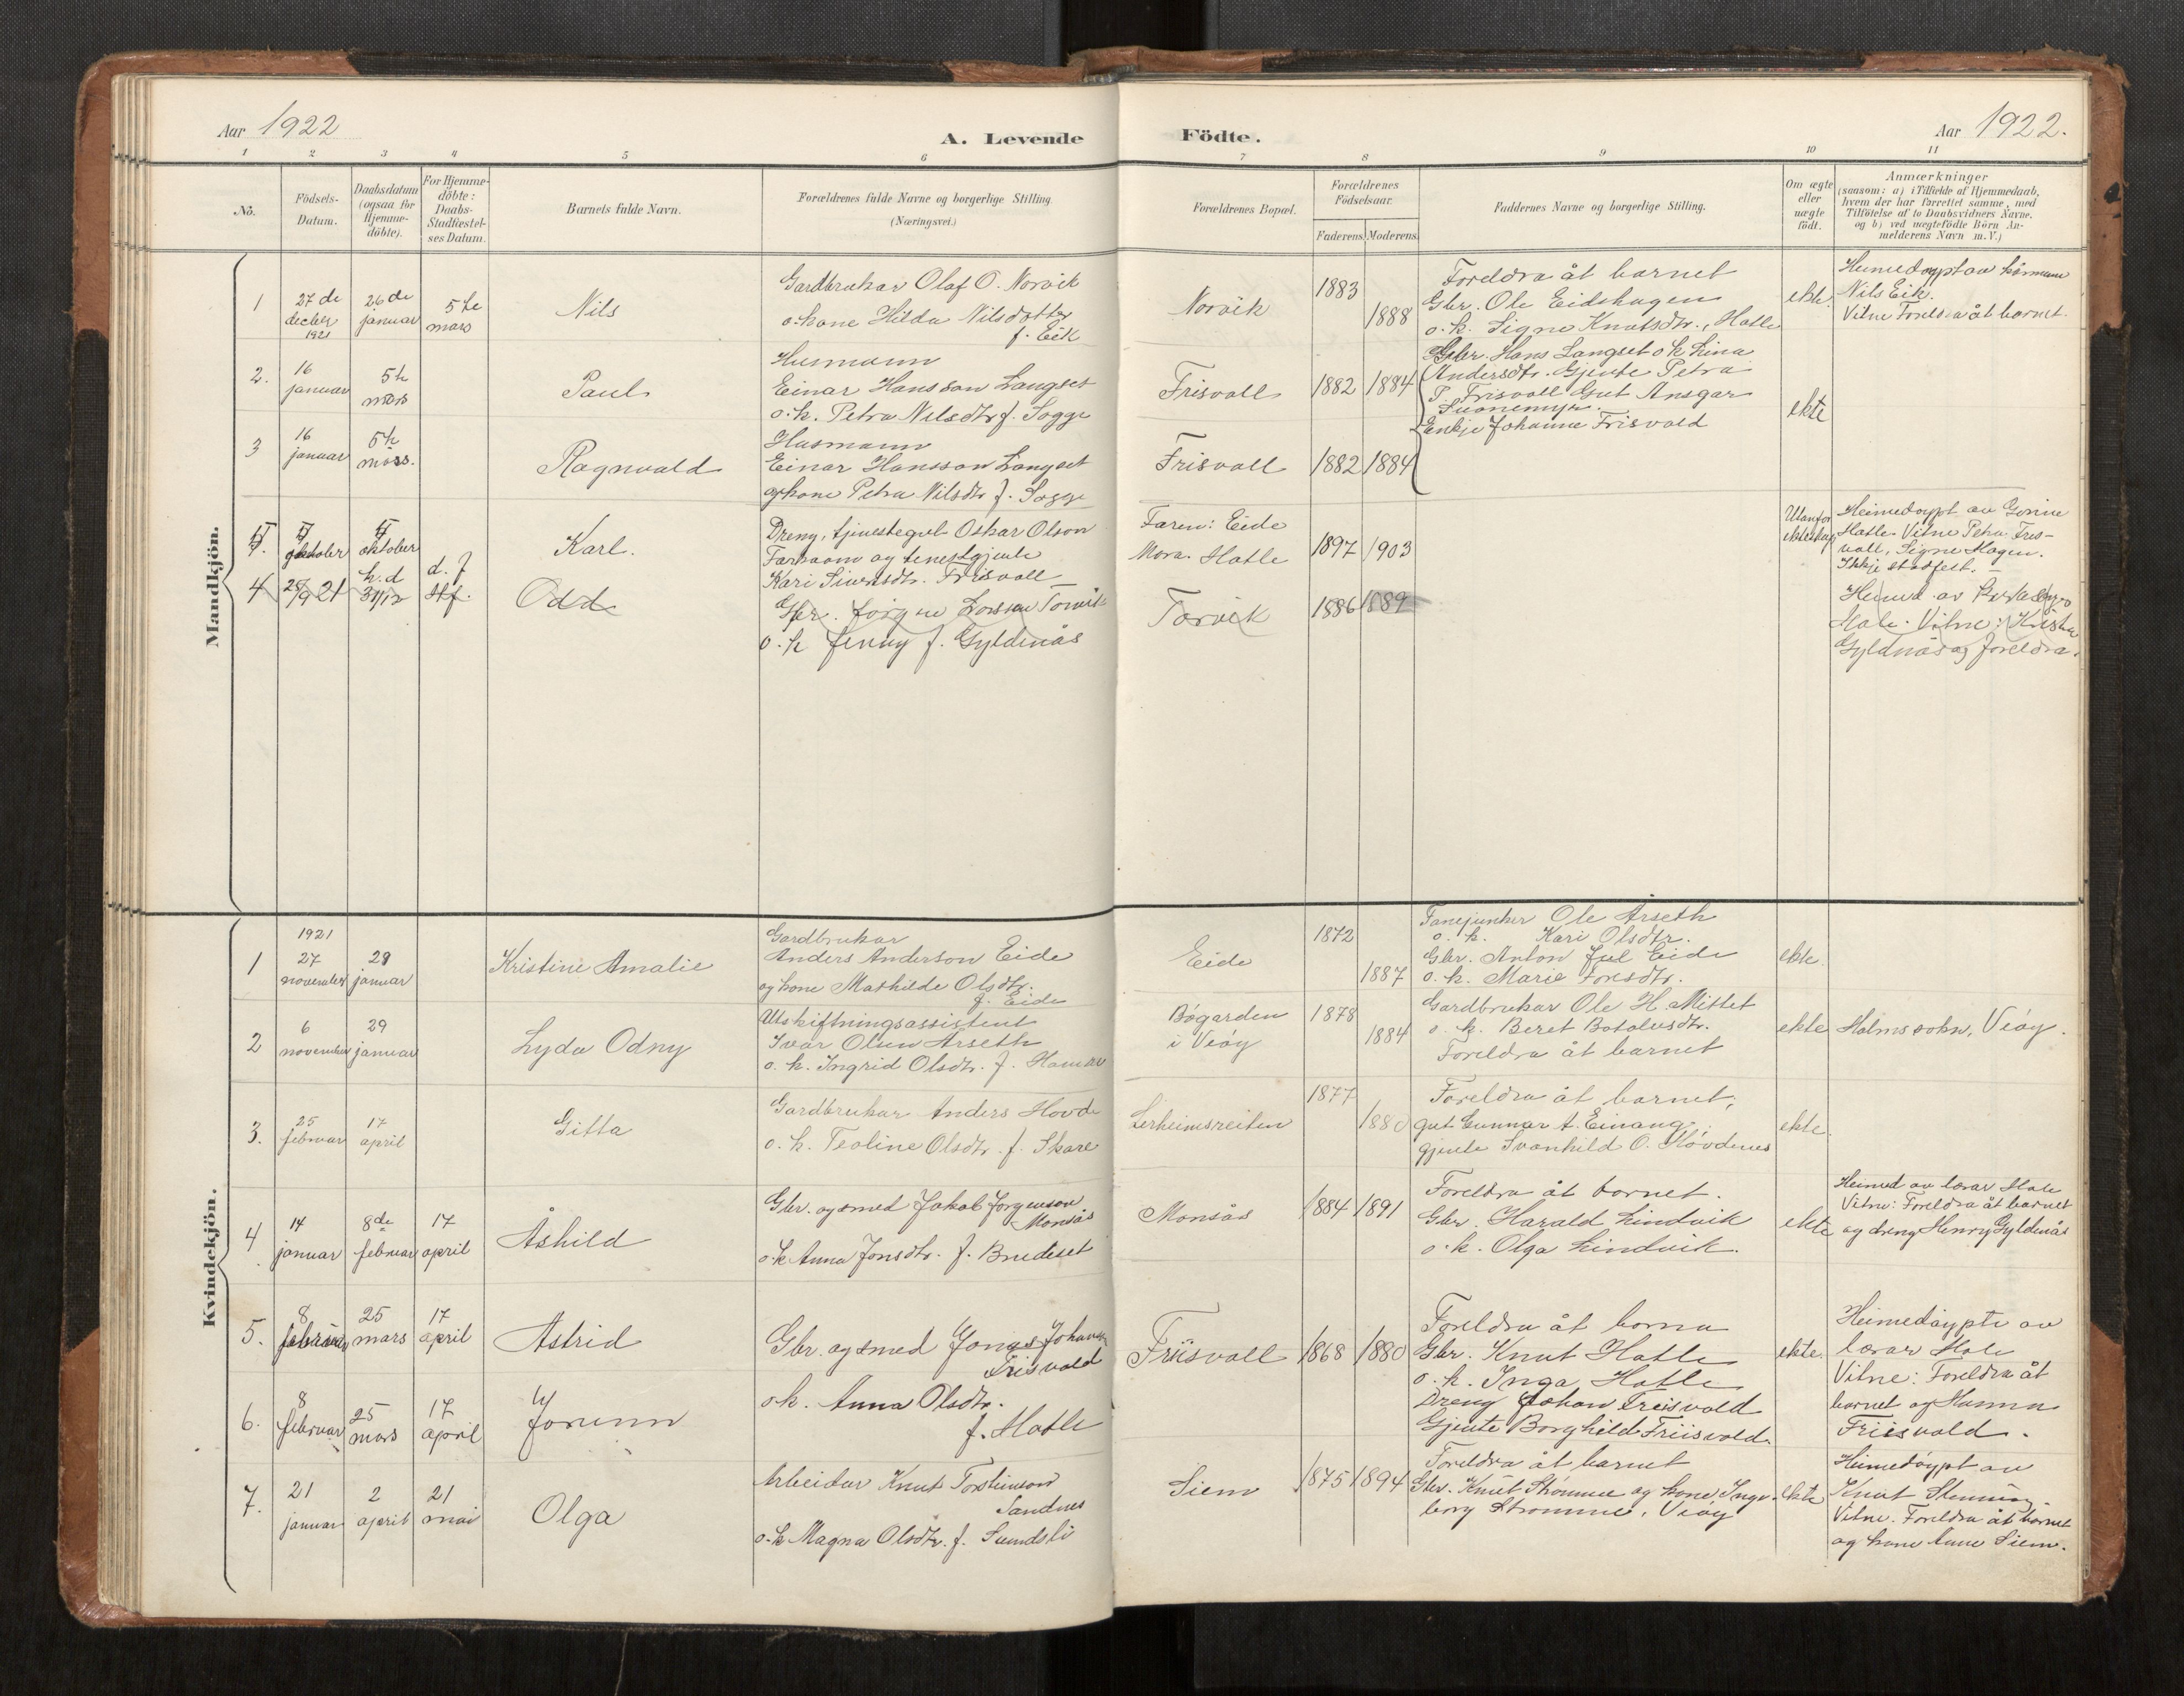 Aar 1922
A. Levende Födte.
Aar 1922.
1 2 3 4 5 6 7 8 9 10 11
No.
Födsels-
Datum.
Daabsdatum
(ogsaa for
Hjemme-
döbte).
For Hjemme-
döbte:
Daabs-
Stadfæstel-
ses Datum.
Barnets fulde Navn.
Forældrenes fulde Navne og borgerlige Stilling
(Næringsvei.)
Forældrenes Bopæl.
Forældrenes
Födselsaar.
Faderens. Moderens.
Faddernes Navne og borgerlige Stilling.
Om ægte
eller
uægte
födt.
Anmærkninger
(saasom: a) i Tilfælde af Hjemmedaab,
hvem der har forrettet samme, med
Tilföielse af to Daabsvidners Navne,
og b) ved uægtefödte Börn An-
melderens Navn m.V.)
Mandkjön.
1
27 de
decber
1921
26 de
januar
5 te
mars
Nils
Gardbrukar Olaf O. Norvik
o. kone Hilda Nilsdotter
f. Eik
Norvik
1883
1888
Foreldra åt barnet
Gbr. Ole Eidshagen
o. k. Signe Knutsdtr. Hatle
ekte.
Heimedøypt av
Nils Eik.
Vitne Foreldra åt barnet.
2.
16
januar
5 te
mars
Paul
Husmann
Einar Hansson Langset
o. k. Petra Nilsdtr f. Sogge
Frisvoll
1882 1884
Gbr. Hans Langset o k Lina
Andersdtr. Gjente Petra
P. Frisvoll Gut Ansgar
Enkje Johanne Frisvold
ekte
3
16
januar
5 te
mars.
Ragnvald
Husmann
Einar Hansson Langset
og kone Petra Nilsdtr f. Sogge
Frisvoll
1882 1884
oktober
oktober
Karl.
Dreng, tjenestegut Oskar Olson
og tenestgjente
Kari Sivertsdtr. Frisvoll
Faren: Eide
Mora. Hatle
1897 1903
Utanfor
ekteskap
Heimedøypt av
Hatle. Vitne Petra Fris-
voll, Signe Hagen.
Ikkje stadfest.
4
28/9 21
h. d
31/12
d. f
stf.
Odd
Gbr. Jørgen Larsen Torvik
o. k Jenny f. Gyldenås
Torvik
1886 1889
Heimd. av
Hole. Vitne: Kristen
Gyldnås og foreldra.
Kvindekjön.
1
1921
27
november
29
januar
Kristine Amalie
Gardbrukar
Anders Anderson Eide
og kone Mathilde Olsdtr.
f. Eide
Eide
1872
1887
Fanejunker Ole Årseth
o. k. Kari Olsdtr.
Gbr. Anton Jul Eide
o. k. Marie Toresdtr.
ekte.
2
6
november
29
januar
Lyda Odny
Utskiftningsassistent
Ivar Olsen Årseth
o. k. Ingrid Olsdtr. f. Hamar
Bøgarden
i Veøy
1878
1884
Gardbrukar Ole H. Mittet
o. k. Beret Botolvsdtr.
Foreldra åt barnet
ekte
Holms sokn, Veøy.
3.
25
februar
17
april
Gitta
Gardbrukar Anders Hovde
o. k. Teoline Olsdtr. f. Skare
Lerheimsreiten
1877
1880
Foreldra åt barnet;
gut Gunnar A. Einang;
gjente Svanhild O. Høvdenes
ekte.
4
14
januar
8de
februar
17
april
Åshild
Gbr. og smed Jakob Jørgenson
Monsås
o. k Anna Jonsdtr. f. Bredeset
Monsås
1884 1891
Foreldra åt barnet.
Gbr. Harald Lindvik
o. k. Olga Lindvik.
ekte
Heimed av lærar Hole
Vitne: Foreldra åt barnet
og dreng Henry Gyldenås
5.
8
februar
25
mars
17
april
Astrid
Gbr. og smed Jonas Johansen
Frisvold
Friisvoll
1868 1880
Foreldra åt borna
Gbr. Knut Hatle
o. k. Inga Hatle
Dreng Johan Freisvold
Gjente Borghild Friisvold.
ekte.
Heimedøypte av
lærar Hole
Vitne: Foreldra åt
barnet og Hanna
Friisvold.
6.
8
februar
25
mars
17
april
Jorunn
o k. Anna Olsdtr.
f. Hatle
7.
21
januar
2
april
21
mai
Olga
Arbeidar Knut Torsteinson
Sandnes
o. k Magna Olsdtr. f. Sundsli
Siem
1875 1894
Foreldra åt barnet
Gbr. Knut Strømme og kone Inge-
borg Strømme, Veøy
ekte
Heimedøypt av
Knut
Vitne. Foreldra åt barnet
og kone Anne Siem.